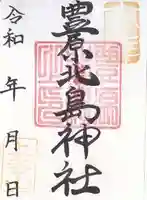 豊原北島神社
令和 年 月 日